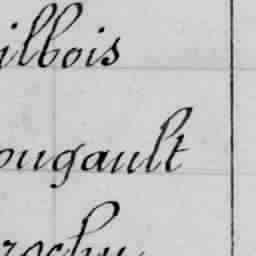 ilbois
ougault
rochu